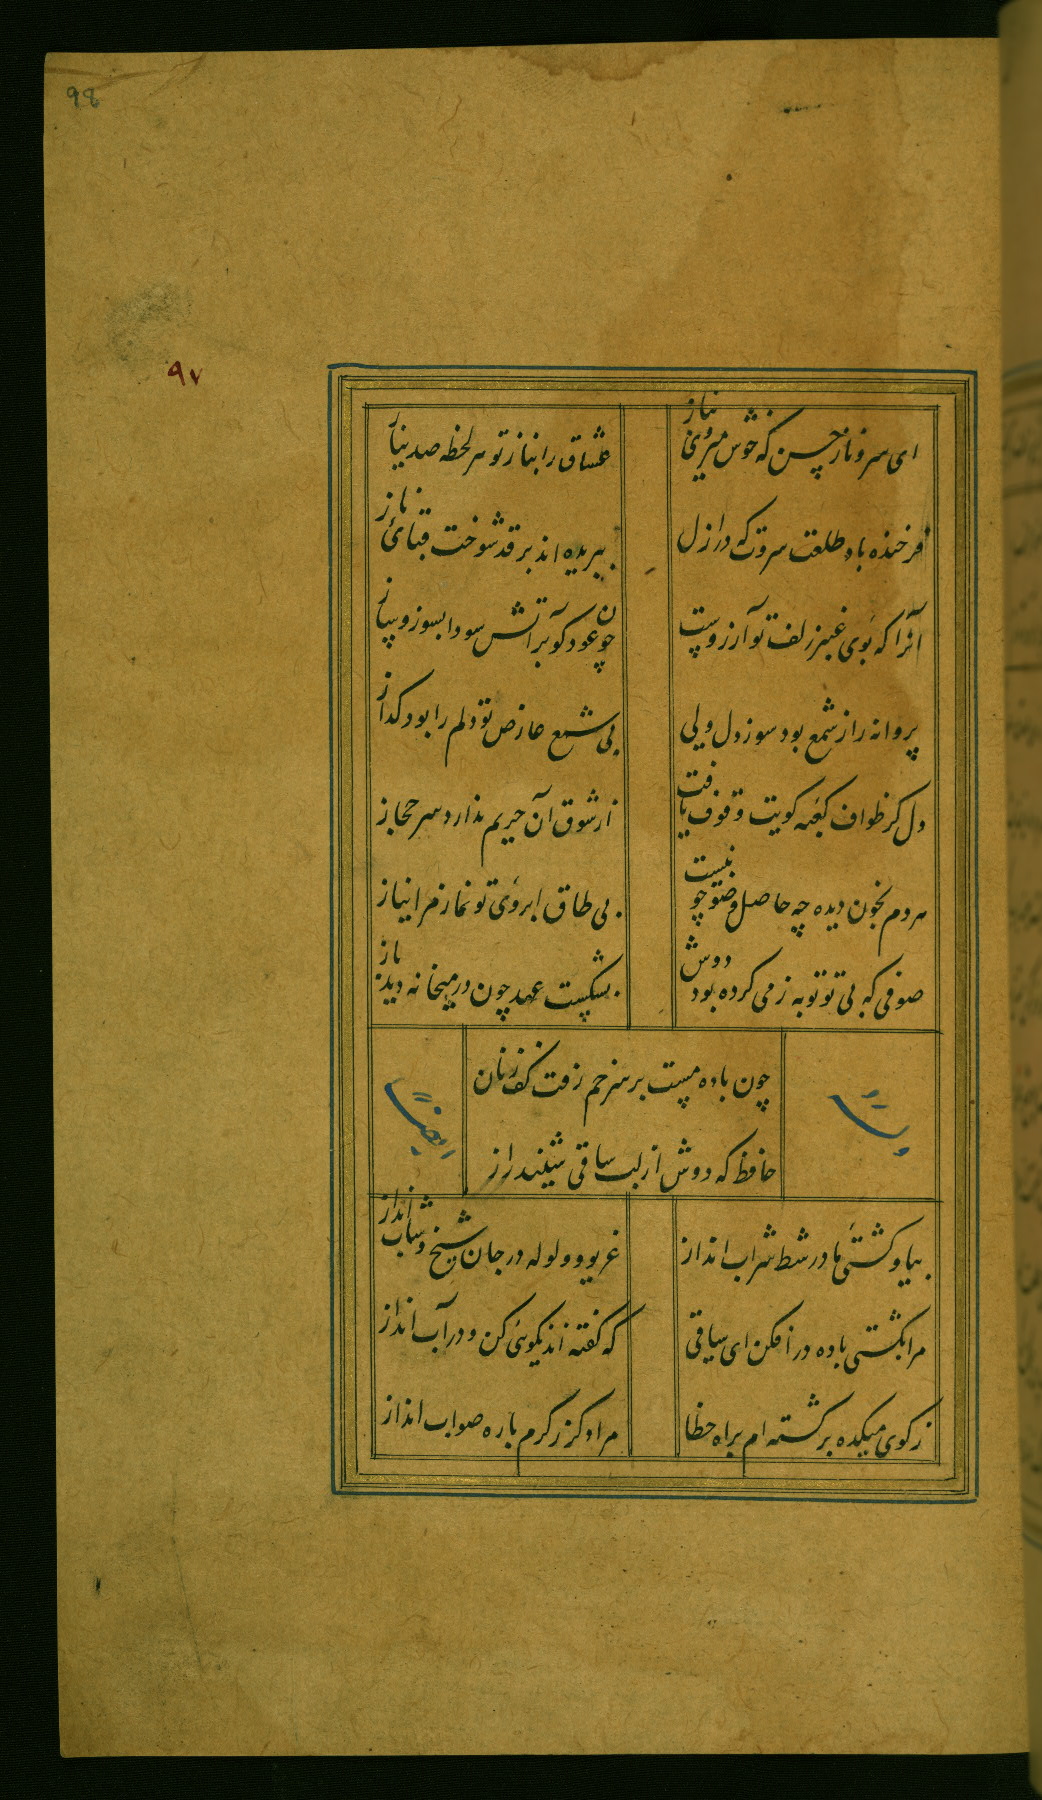 98
۹۷
ای سرو ناز حسن که خوش میروی بناز
عشاق را بناز تو هر لحظه صد نیاز
فرخنده باد طلعت سروت که در ازل
ببریده اند بر قد شوخت قبائی ناز
آنرا که بوی عنبر زلف تو آرزوست
چون عود کو بر آتش سودا بسوز و بساز
پروانه را ز شمع بود سوز دل ولی
بی شمع عارض تو دلم را بود کداز
دل کز طواف کعبه کویت وقوف یافت
از شوق آن حریم ندارد سر حجاز
هر دم بخون دیده چه حاصل وضو چو نیست
بی طاق ابروی تو نماز مرا نیاز
صوفی که بی تو توبه ز می کرده بود دوش
بشکست عهد چون در میخانه دید باز
چون باده مست بر سر خم رفت کف زنان
حافظ که دوش از لب ساقی شنید راز
وله
ایضا
بیا و کشتی ما در شط شراب انداز
غریو و ولوله در جان شیخ و شاب انداز
مرا بکشتی باده در افکن ای ساقی
که کفته اند نکوئی کن و در آب انداز
ز کوی میکده برکشته ام براه خطا
مرا دکر ز کرم باره صواب انداز